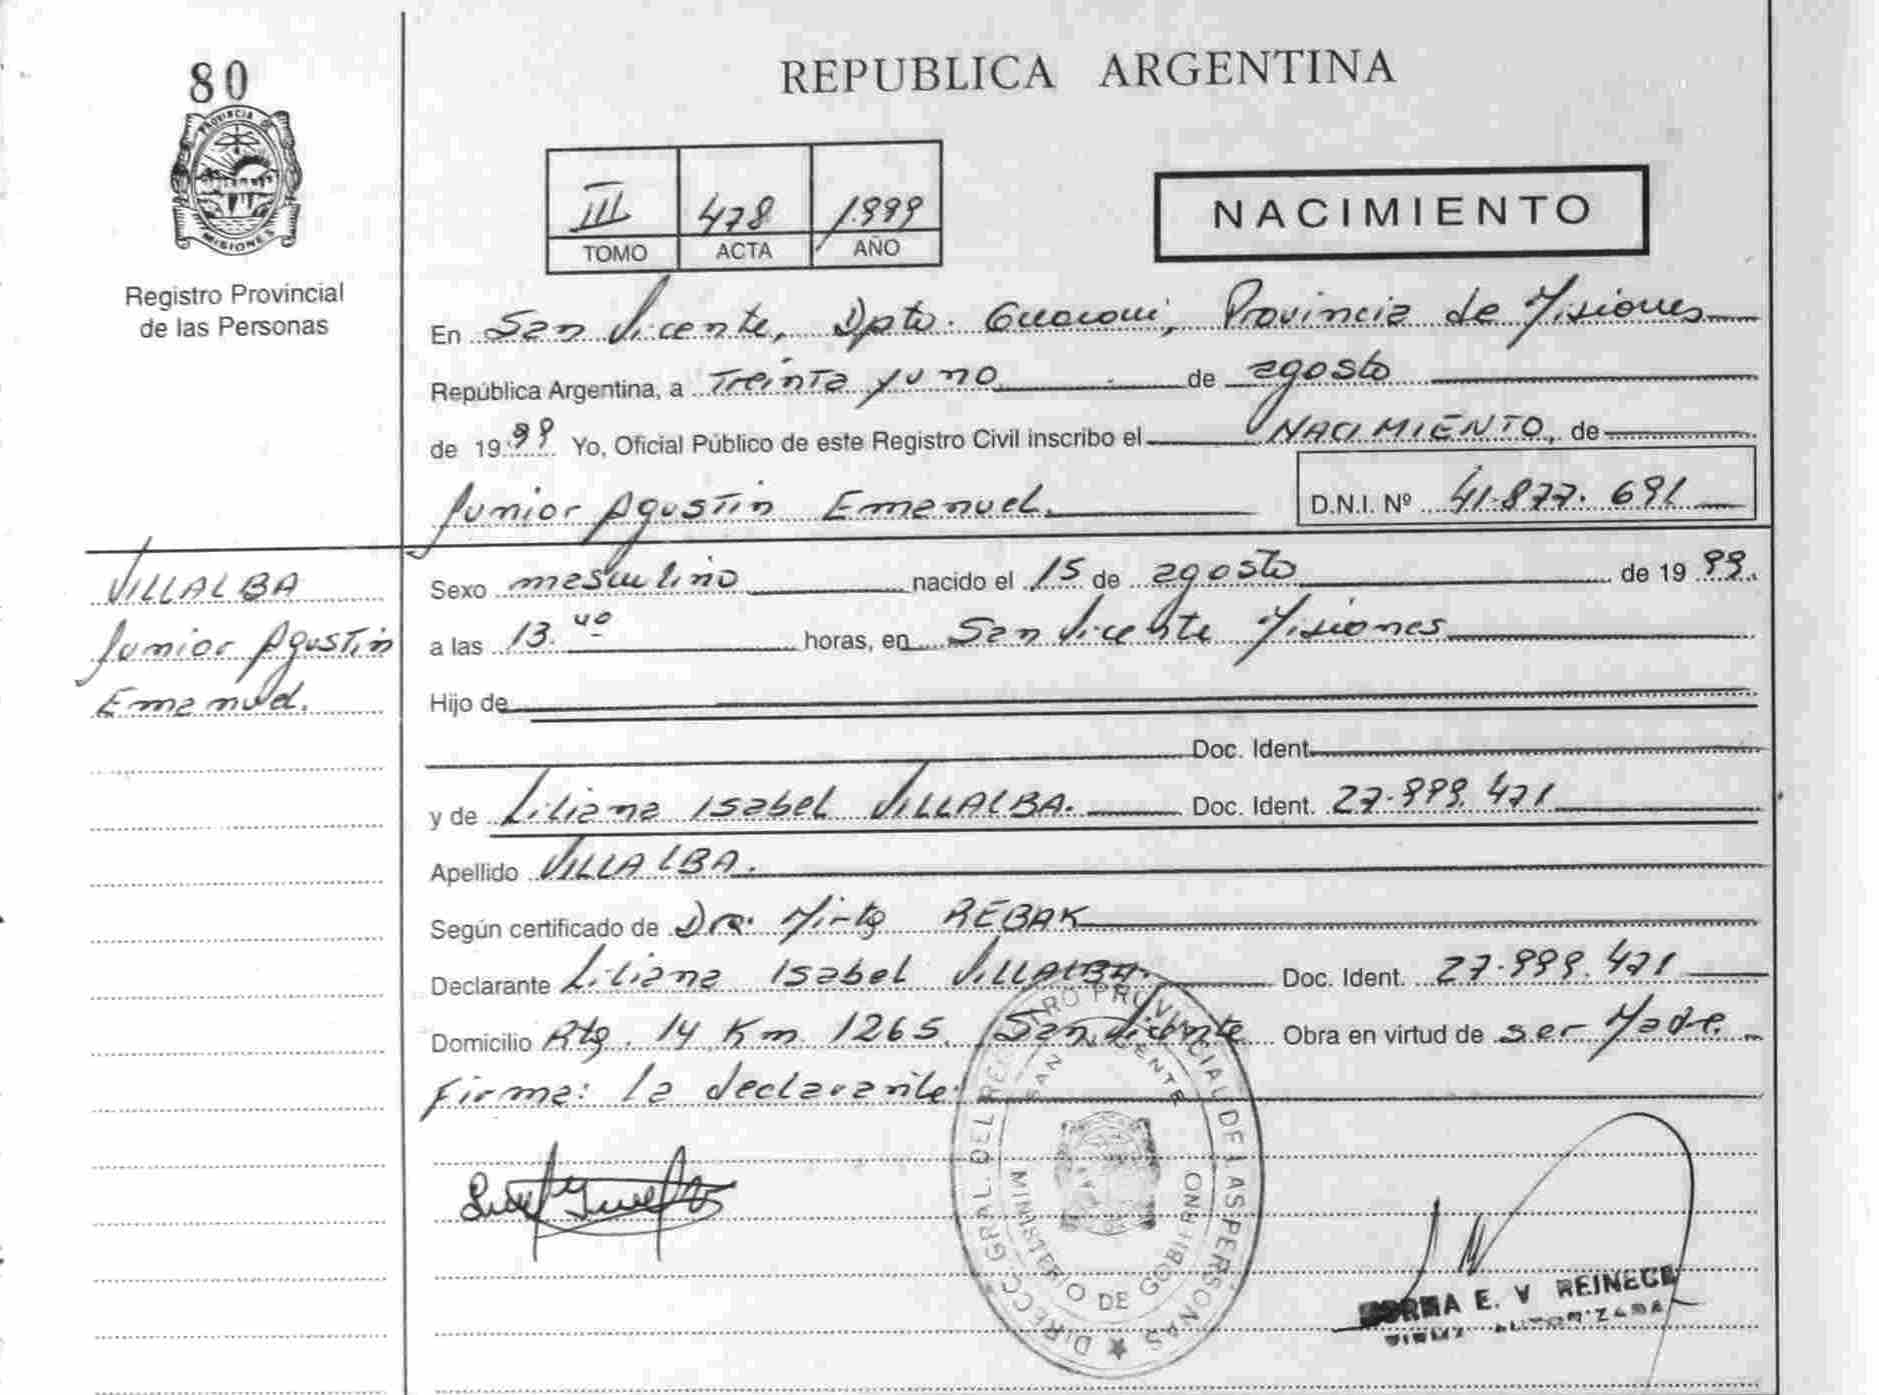 80
PROVINCIA DE
MISIONES
Registro Provincial
de las Personas
REPUBLICA ARGENTINA
III 478 1999
TOMO ACTA AÑO
NACIMIENTO
En San Vicente, Dpto. Guaraní, Provincia de Misiones
República Argentina, a Treinta y uno de agosto
de 1999 Yo, Oficial Público de este Registro Civil inscribo el NACIMIENTO, de
Junior Agustin Emanuel. D.N.I. Nº 41.877.691
VILLALBA
Junior Agustin
Emanuel.
Sexo masculino nacido el 15 de agosto de 1999.
a las 13.40 horas, en San Vicente Misiones
Hijo de
Doc. Ident.
y de Liliana Isabel VILLALBA. Doc. Ident. 27.999.471
Apellido VILLALBA.
Según certificado de Dra. Mirta REBAK
Declarante Liliana Isabel VILLALBA. Doc. Ident. 27.999.471
Domicilio Rta. 14 Km 1265. San Vicente Obra en virtud de ser Madre.
Firma: la declarante.
DIRECC. GRAL. DEL REGISTRO PROVINCIAL DE LAS PERSONAS
SAN VICENTE
MINISTERIO DE GOBIERNO
E. V REINECK
AUTORIZADA